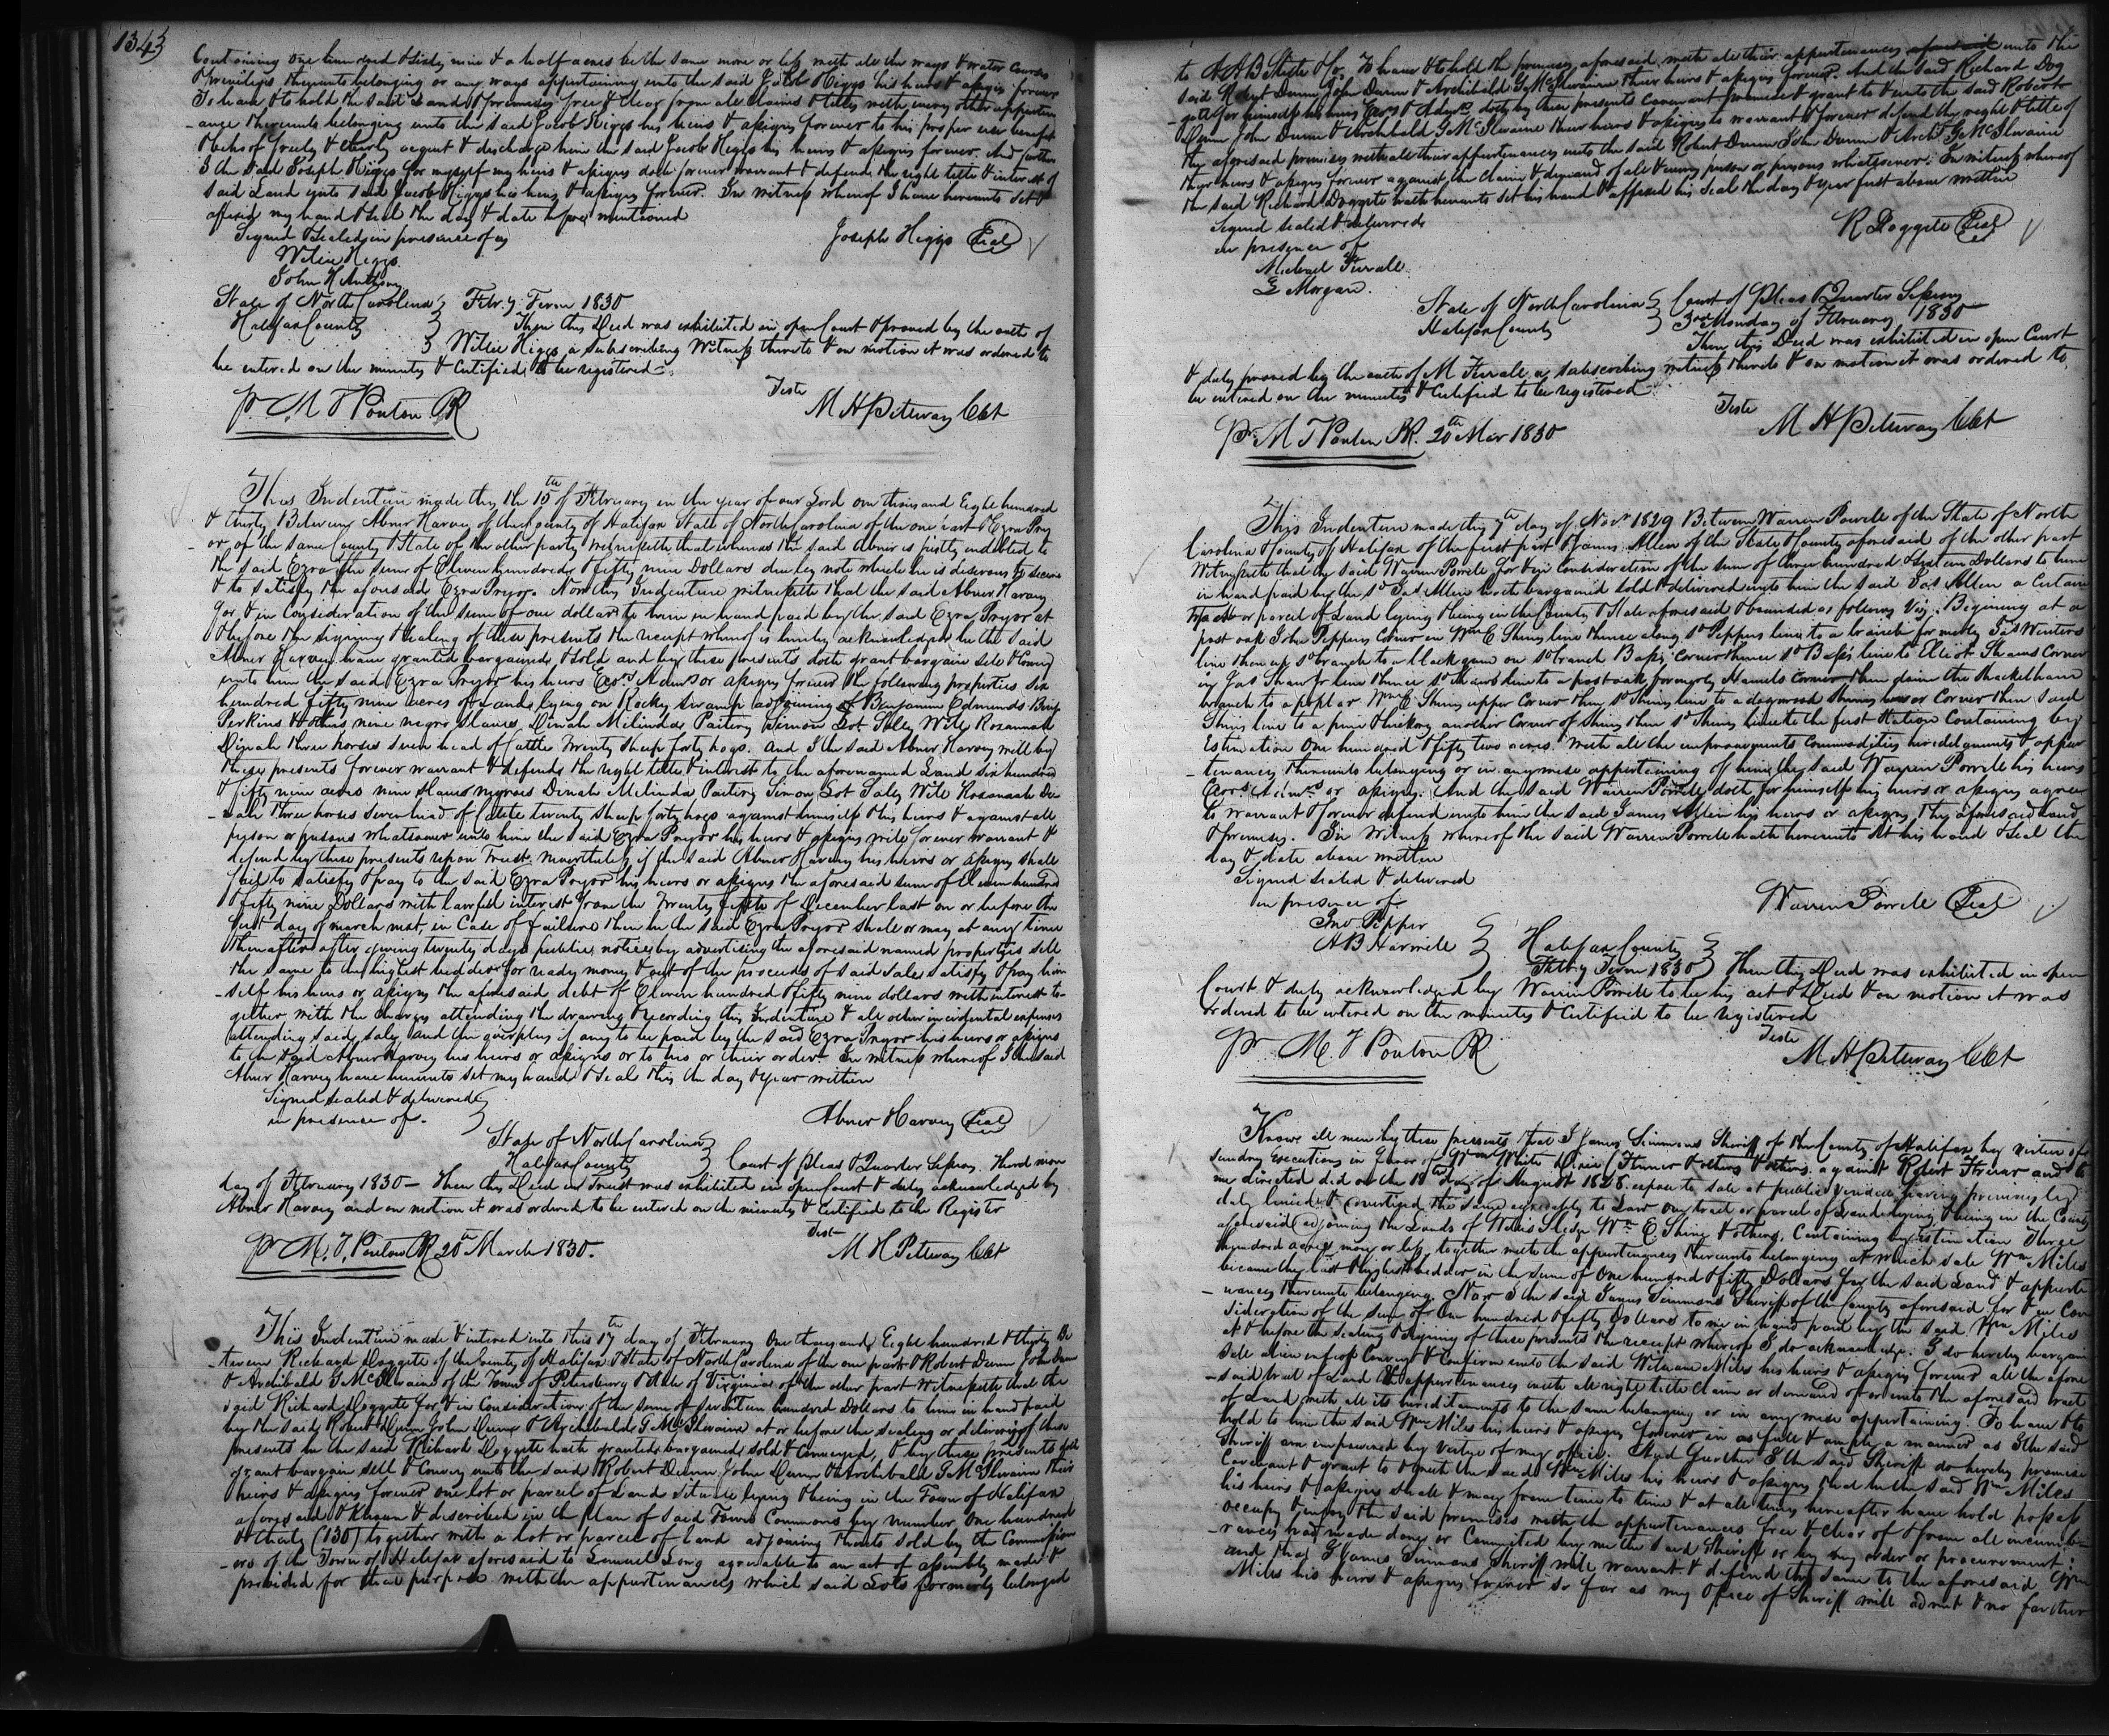 1343
Containing one hundred & sixty nine & a half acres be the same more or less with all the ways & water courses
& privileges thereunto belonging or any ways appertaining unto the said Jacob Higgs his heirs & assigns forever
To have & to hold the said Land & premises free & clear from all claims & titles with every other appurten
-ance thereunto belonging unto the said Jacob Higgs his heirs & assigns forever to his proper use benefit
& behoof freely & clearly acquit & discharge him the said Jacob Higgs his heirs & assigns forever. And further
I the said Joseph Higgs for myself my heirs & assigns doth forever warrant & defend the right title & interest of
said Land unto said Jacob Higgs his heirs & assigns forever. In witness whereof I have hereunto set &
affixed my hand & seal the day & date before mentioned
Signed & sealed in presence of us
Joseph Higgs Seal
Willie Higgs
John H Anthony
State of North Carolina } Feby. Term 1830
Halifax County } Then this Deed was exhibited in open Court & proved by the oath of
} Willie Higgs a subscribing Witness thereto & on motion it was ordered to
be entered on the minutes & Certified to be registered
Teste
pr. M T Ponton PR M H Pettway Clk
This Indenture made this the 15th of February in the year of our Lord one thousand Eight hundred
& thirty Between Abner Harvey of the County of Halifax State of North Carolina of the one part & Ezra Pry
-or of the same County & State of the other party witnesseth that whereas the said Abner is justly indebted to
the said Ezra the sum of Eleven hundred & fifty nine Dollars due by note which he is desirous to secure
& to satisfy the aforesaid Ezra Pryor. Now this Indenture witnesseth that the said Abner Harvey
for & in consideration of the sum of one dollar to him in hand paid by the said Ezra Pryor at
& before the signing & sealing of these presents the receipt whereof is hereby acknowledged he the said
Abner Harvey have granted bargained & sold and by these presents doth grant bargain sell & Convey
unto him the said Ezra Pryor his heirs Exrs Admrs or assigns forever the following properties six
hundred fifty nine acres of Land lying on Rocky swamp adjoining of Benjamin Edmunds
Perkins & others nine negro slaves, Dinah Milinda Simon Lot Sally Will Rosannah
Dinah three horses seven head of Cattle Twenty sheep forty hogs. And I the said Abner Harvey will by
these presents forever warrant & defend the right title & interest to the aforenamed Land six hundred
& fifty nine acres nine slaves negroes Dinah Milinda Simon Lot Sally Will Rosannah Di
-nah three horses seven head of Cattle twenty sheep forty hogs against himself & his heirs & against all
person or persons whatsoever unto him the said Ezra Pryor his heirs & assigns will forever warrant &
defend by these presents upon Trust. Nevertheless if the said Abner Harvey his heirs or assigns shall
fail to satisfy & pay to the said Ezra Pryor his heirs or assigns the aforesaid sum of Eleven hundred
& fifty nine Dollars with lawful interest from the Twenty fifth of December last on or before the
first day of march next, in Case of failure then he the said Ezra Pryor shall or may at any time
thereafter after giving twenty days public notice by advertising the aforesaid named properties sell
the same to the highest bidder for ready money & out of the proceeds of said sales satisfy & pay him
-self his heirs or assigns the aforesaid debt of Eleven hundred & fifty nine dollars with interest to-
gether with the charges attending the drawing & recording this Indenture & all other incidental expenses
attending said sale, and the overplus if any to be paid by the said Ezra Pryor his heirs or assigns
to the said Abner Harvey his heirs or assigns or to his or their order In witness whereof I the said
Abner Harvey have hereunto set my hand & seal this the day & year written
Signed sealed & delivered }
in presence of. } Abner Harvey Seal
State of North Carolina }
Halifax County } Court of Pleas & Quarter Sessions. Third mon
day of February 1830 — Then this Deed in Trust was exhibited in open Court & duly acknowledged by
Abner Harvey and on motion it was ordered to be entered on the minutes & Certified to the Register
Test
pr M. T. Ponton PR 20th March 1830. M H Pettway Clk
This Indenture made & entered into this 17th day of February One thousand Eight hundred & thirty Be
-tween Richard Doggett of the County of Halifax & State of North Carolina of the one part & Robert Dunn John Dunn
& Archibald G McIlwaine of the Town of Petersburg & State of Virginia of the other part Witnesseth that the
said Richard Doggett for & in Consideration of the sum of seventeen hundred Dollars to him in hand paid
by the said Robert Dunn John Dunn & Archibald G McIlwaine at or before the sealing or delivery of these
presents he the said Richard Doggett hath granted, bargained, sold & conveyed, & by these presents doth
grant bargain sell & Convey unto the said Robert Dunn John Dunn & Archibald G McIlwaine their
heirs & assigns forever one lot or parcel of Land situate lying & being in the Town of Halifax
aforesaid & Known & described in the plan of said Town Commons by number One hundred
& thirty (130) together with a lot or parcel of Land adjoining thereto sold by the Commission
-ers of the Town of Halifax aforesaid to Lemuel Long agreeable to an act of assembly made &
provided for that purpose with the appurtenances which said Lots formerly belonged
to A B & Co. To have & to hold the premises aforesaid with all their appurtenances unto the
said Robert Dunn John Dunn & Archibald G McIlwaine their heirs & assigns forever. And the said Richard Dog
-gett for himself his heirs Exrs & Admrs doth by these presents covenant promise & grant to & unto the said Robert
Dunn John Dunn & Archibald G McIlwaine their heirs & assigns to warrant & forever defend the right & title of
the aforesaid premises with all their appurtenances unto the said Robert Dunn John Dunn & Archd G McIlwaine
their heirs & assigns forever against the claim & demand of all & every person or persons whatsoever. In witness whereof
the said Richard Doggett hath hereunto set his hand & affixed his seal the day & year first above written
Signed sealed & delivered
in presence of R Doggett Seal
Michael Ferrall
G Morgan.
State of North Carolina } Court of Pleas & Quarter Sessions
Halifax County } 3rd Monday of February 1830
Then this Deed was exhibited in open Court
& duly proved by the oath of M Ferrall a subscribing witness thereto & on motion it was ordered to
be entered on the minutes & Certified to be registered
Teste
pr. M T Ponton PR. 20th Mar 1830 M H Pettway Clk
This Indenture made this 7th day of Novr 1829 Between Warren Powell of the State of North
Carolina & County of Halifax of the first part & James Allen of the State & County aforesaid of the other part
Witnesseth that the said Warren Powell for & in Consideration of the sum of three hundred & sixteen Dollars to him
in hand paid by the sd Jas Allen hath bargained sold & delivered unto him the said Jas Allen a Certain
Tract or parcel of Land lying & being in the County & State aforesaid & bounded as follows Viz. Begining at a
post oak John Peppers Corner in Wm C Shines line thence along sd Peppers line to a branch formerly Jas Winters
line then up sd branch to a black gum on sd branch Bass's Corner thence sd Bass's line to Elliot Thames Corner
in Jas line thence sd line to a post oak formerly Daniels Corner then down the
branch to a poplar Wm C Shines upper Corner then sd Shines line to a dogwood Shines Corner then said
Shines line to a pine & hickory another Corner of Shines then sd Shines line to the first Station Containing by
Estimation One hundred & fifty two acres. With all the improvements Commodities hereditaments & appur
-tenances thereunto belonging or in anywise appertaining of him the said Warren Powell his heirs
Exrs Admrs or assigns. And the said Warren Powell doth for himself his heirs or assigns agree
to warrant & forever defend unto him the said James Allen his heirs or assigns the aforesaid land
& premises. In Witness whereof the said Warren Powell hath hereunto set his hand & seal the
day & date above written
Signed sealed & delivered
in presence of Warren Powell Seal
Jno Pepper
A B Harwell } Halifax County }
Feby Term 1830 } Then this Deed was exhibited in open
Court & duly acknowledged by Warren Powell to be his act & Deed & on motion it was
ordered to be entered on the minutes & Certified to be registered
Teste
pr M. T Ponton PR M. H Pettway Clk
Know all men by these presents that I James Simmons Sheriff of the County of Halifax by virtue of
sundry executions in favor of White & others against Robert and to
me directed did on the 18th day of August 1828 expose to sale at public vendue having previously
duly levied & advertised the same agreeably to Law one tract or parcel of Land lying & being in the County
aforesaid adjoining the Lands of Willis Sledge Wm C. Shine & others, Containing by estimation Three
hundred acres more or less, together with the appurtenances thereunto belonging at which sale Wm Miles
became the last & highest bidder in the sum of One hundred & fifty Dollars for the said Land & appurte
-nances thereunto belonging. Now I the said James Simmons Sheriff of the County aforesaid for & in Con
sideration of the sum of One hundred & fifty Dollars to me in hand paid by the said Wm Miles
at & before the sealing & signing of these presents the receipt whereof I do acknowledge. I do hereby bargain
sell alien enfeoff Convey & Confirm unto the said William Miles his heirs & assigns forever all the afore
-said tract of Land & appurtenances with all right title claim or demand of or unto the aforesaid tract
of Land with all its hereditaments to the same belonging or in any wise appertaining. To have & to
hold to him the said Wm Miles his heirs & assigns forever in as full & ample a manner as I the said
Sheriff am empowered by virtue of my office. And further I the said Sheriff do hereby promise
Covenant & grant to & with the said Wm Miles his heirs & assigns that he the said Wm Miles
his heirs & assigns shall & may from time to time & at all times hereafter have hold possess
occupy & enjoy the said premises with the appurtenances free & clear of & from all incumb-
-rances had made done or Committed by me the said Sheriff or by my order or procurement;
and that I James Simmons Sheriff will warrant & defend the same to the aforesaid Wm
Miles his heirs & assigns forever so far as my Office of Sheriff will admit & no farther